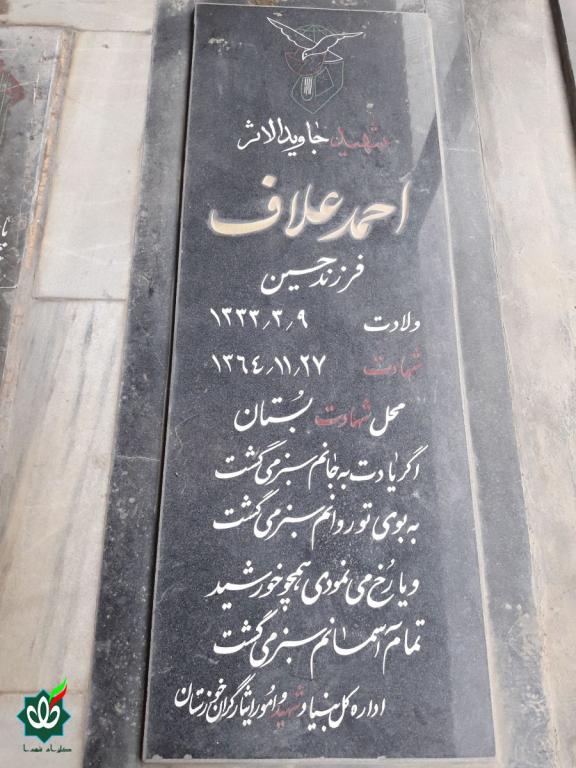 شهید جاویدالاثر
احمد علاف
فرزند حسین
ولادت ۱۳۳۳٫۳٫۹
شهادت ۱۳۶۴٫۱۱٫۲۷
محل شهادت بُستان
اگر یادت به جانم سبز می گشت
به بوی تو روانم سبز می گشت
و یا رُخ می نمودی همچو خورشید
تمام آسمانم سبز می گشت
اداره کل بنیاد شهید و امور ایثارگران خوزستان
گلزار شهدا